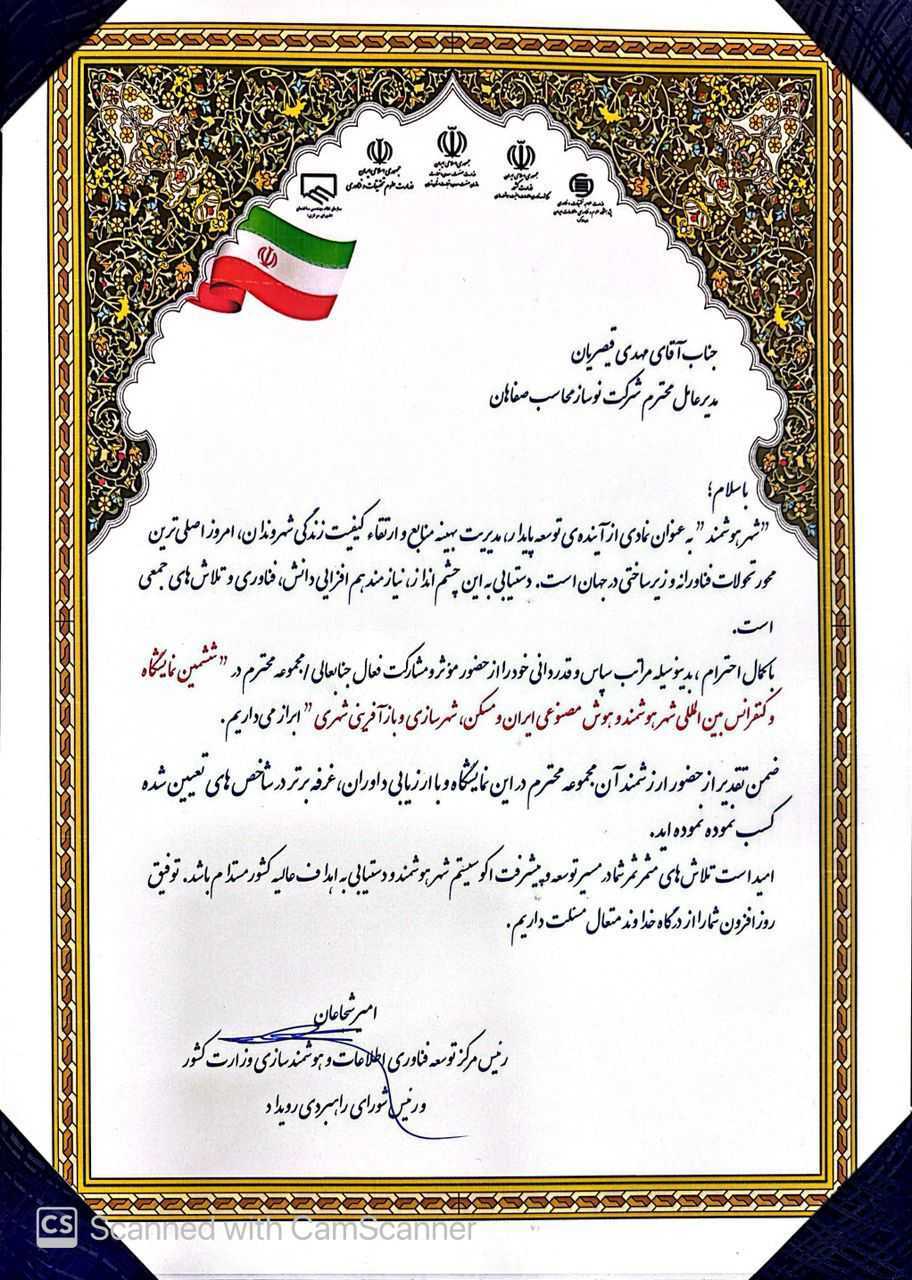 جمهوری اسلامی ایران
وزارت علوم، تحقیقات و فناوری
جمهوری اسلامی ایران
جمهوری اسلامی ایران
وزارت کشور
جناب آقای مهدی قیصریان
مدیرعامل محترم شرکت نوساز محاسب صفاهان
باسلام؛
"شهر هوشمند" به عنوان نمادی از آینده‌ی توسعه پایدار، مدیریت بهینه منابع و ارتقاء کیفیت زندگی شهروندان، امروز اصلی‌ترین
محور تحولات فناورانه و زیرساختی در جهان است. دستیابی به این چشم انداز، نیازمند هم افزایی دانش، فناوری و تلاش‌های جمعی
است.
با کمال احترام، بدینوسیله مراتب سپاس و قدردانی خود را از حضور مؤثر و مشارکت فعال جنابعالی/مجموعه محترم در "ششمین نمایشگاه
و کنفرانس بین المللی شهر هوشمند و هوش مصنوعی ایران و مسکن، شهرسازی و بازآفرینی شهری" ابراز می‌داریم.
ضمن تقدیر از حضور ارزشمند آن مجموعه محترم در این نمایشگاه و با ارزیابی داوران، غرفه برتر در شاخص های تعیین شده
کسب نموده نموده اید.
امید است تلاش‌های مثمرثمر شما در مسیر توسعه و پیشرفت اکوسیستم شهر هوشمند و دستیابی به اهداف عالیه کشور مستدام باشد. توفیق
روزافزون شما را از درگاه خداوند متعال مسئلت داریم.
امیر شجاعان
رئیس مرکز توسعه فناوری اطلاعات و هوشمندسازی وزارت کشور
و رئیس شورای راهبردی رویداد
CS Scanned with CamScanner